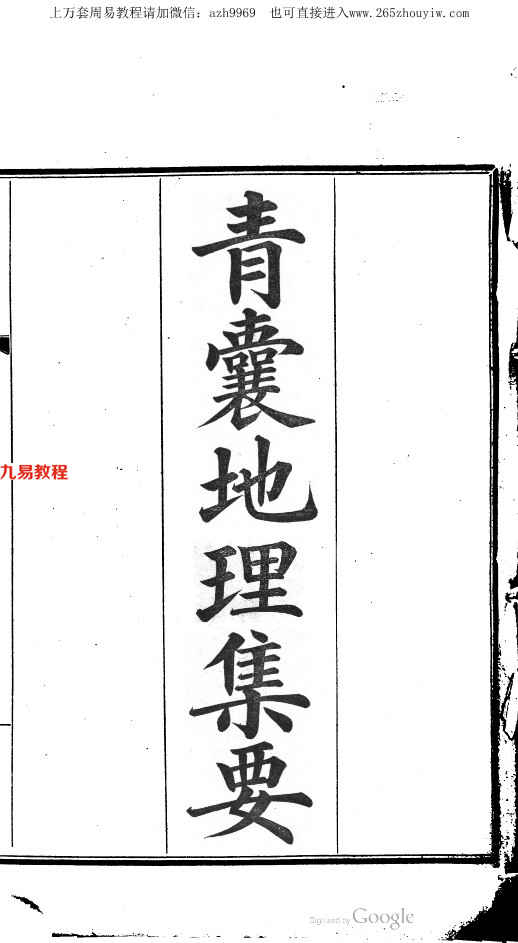 上万套周易教程请加微信：azh9969 也可直接进入www.265zhouyiw.com
青囊地理集要
九易教程
Digitized by Google